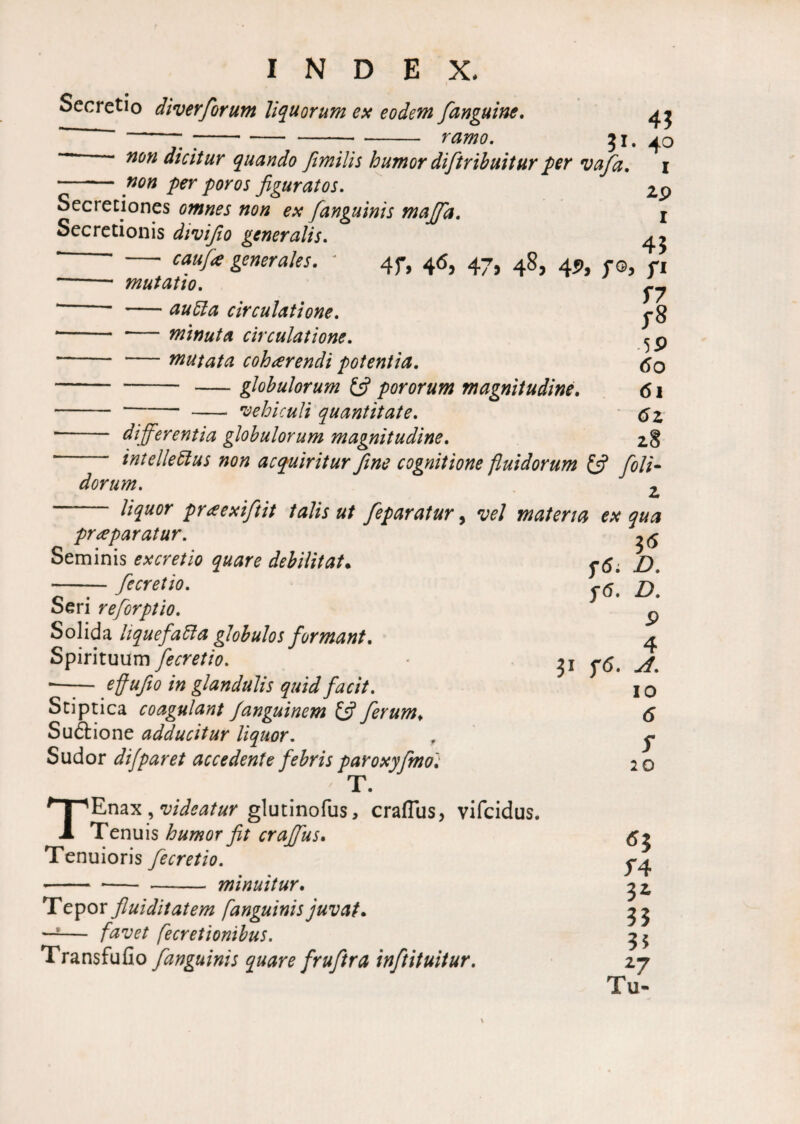 INDEX.
Secretio diverſorum liquorum ex eodem ſanguine. 43
—— —— —— —— —— ramo. 31. 40
—— non dicitur quando ſimilis humor diſtribuitur per vaſa. 1
—— non per poros figuratos. 29
Secretiones omnes non ex ſanguinis maſſa. 1
Secretionis diviſio generalis. 43
—— —— cauſæ generales. 45, 46, 47, 48, 49, 50, 51
—— mutatio. 57
—— —— aucta circulatione. 58
—— —— minuta circulatione. 59
—— —— mutata cohærendi potentia. 60
—— —— —— globulorum & pororum magnitudine. 61
—— —— —— vehiculi quantitate. 62
—— differentia globulorum magnitudine. 28
—— intellectus non acquiritur ſine cognitione fluidorum & ſoli-
dorum. 2
—— liquor præexiſtit talis ut ſeparatur, vel materia ex qua
præparatur. 36
Seminis excretio quare debilitat. 56. D.
—— ſecretio. 56. D.
Seri reſorptio. 9
Solida liquefacta globulos formant. 4
Spirituum ſecretio. 31 56. A.
—— effuſio in glandulis quid facit. 10
Stiptica coagulant ſanguinem & ſerum. 6
Suctione adducitur liquor. 5
Sudor diſparet accedente febris paroxyſmo. 20
T.
TEnax, videatur glutinoſus, craſſus, viſcidus.
Tenuis humor fit craſſus. 63
Tenuioris ſecretio. 54
—— —— —— minuitur. 32
Tepor fluiditatem ſanguinis juvat. 33
—— favet ſecretionibus. 35
Transfuſio ſanguinis quare fruſtra inſtituitur. 27
Tu-